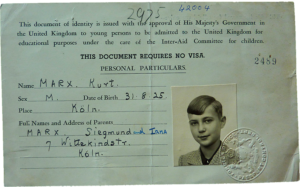 2975
42004
This document of identity is issued with the approval of His Majesty's Government in
the United Kingdom to young persons to be admitted to the United Kingdom for
educational purposes under the care of the Inter-Aid Committee for children.
THIS DOCUMENT REQUIRES NO VISA.
PERSONAL PARTICULARS.
2489
Name MARX Kurt.
Sex M. Date of Birth 31.8.25.
Place Köln
Full Names and Address of Parents
MARX Siegmund and
7
Köln.